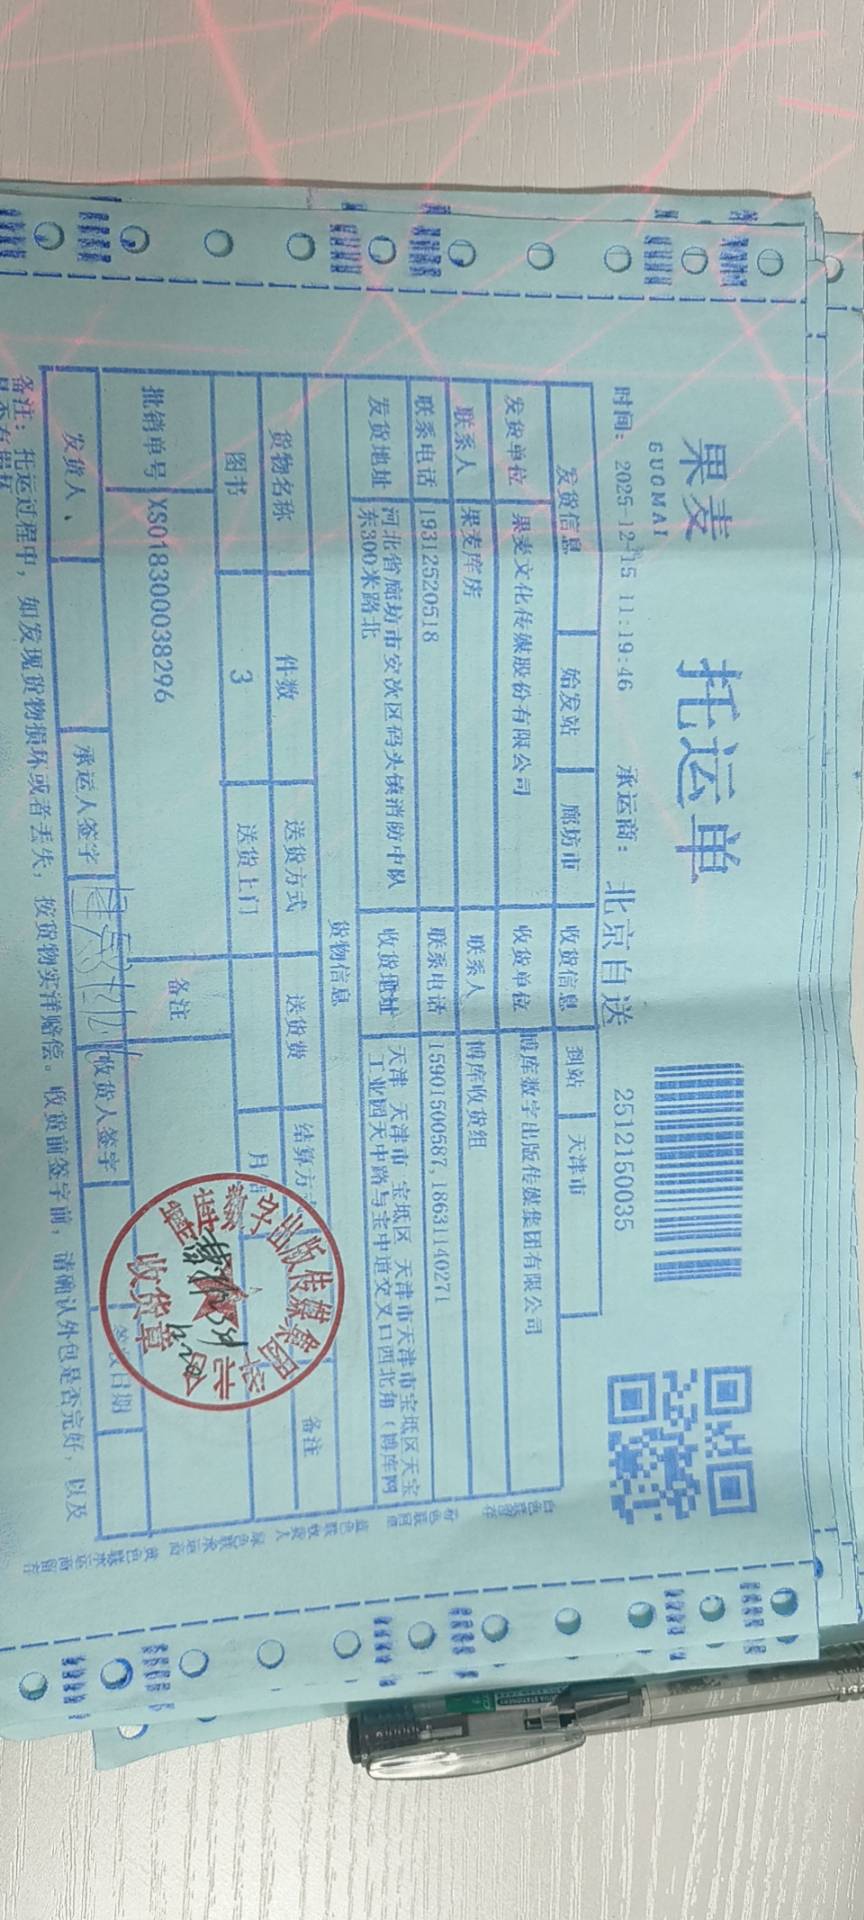 果麦
GUOMAI
托运单
时间: 2025-12-15 11:19:46 承运商: 北京自送 2512150035
发货信息 始发站 廊坊市 收货信息 到站 天津市
发货单位 果麦文化传媒股份有限公司 收货单位 博库数字出版传媒集团有限公司
联系人 果麦库房 联系人 博库收货组
联系电话 19312520518 联系电话 15901500587,18631140271
发货地址 河北省廊坊市安次区码头镇消防中队东300米路北 收货地址 天津 天津市 宝坻区 天津市天津市宝坻区天宝工业园天中路与宝中道交叉口西北角(博库网
货物信息
货物名称 件数 送货方式 送货费 结算方式 备注
图书 3 送货上门 月结
批销单号 XS018300038296 备注
发货人、 承运人签字 收货人签字 签收日期
备注: 托运过程中, 如发现货物损坏或者丢失, 按货物实洋赔偿。收货前签字前, 请确认外包是否完好, 以及
是否有损坏
数字出版传媒集团
收货章